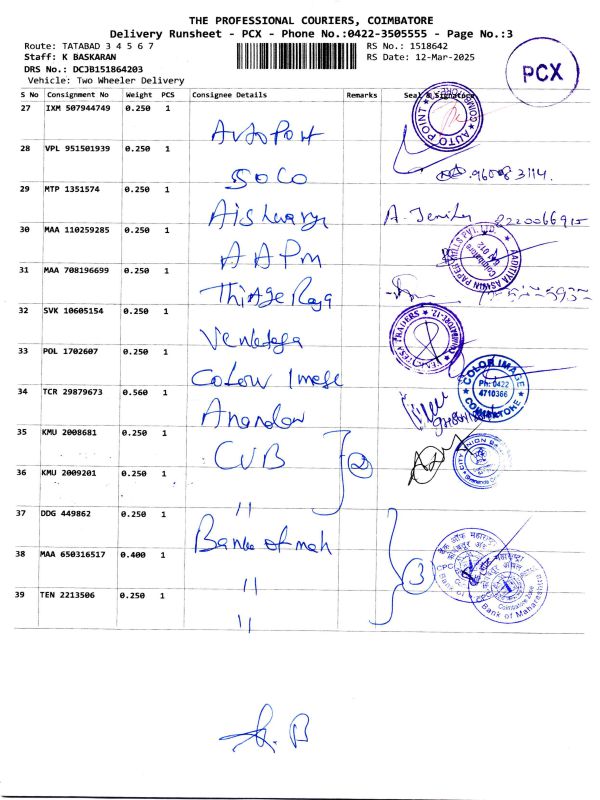 THE PROFESSIONAL COURIERS, COIMBATORE
Delivery Runsheet - PCX - Phone No.:0422-3505555 - Page No.:3
Route: TATABAD 3 4 5 6 7
RS No.: 1518642
Staff: K BASKARAN
RS Date: 12-Mar-2025
DRS No.: DCJB151864203
Vehicle: Two Wheeler Delivery
PCX
S No Consignment No Weight PCS Consignee Details Remarks Seal & Signature
27 IXM 507944749 0.250 1 AUTO POINT
28 VPL 951501939 0.250 1 SOCO
29 MTP 1351574 0.250 1 Aishwarya A. Jenifer 8220066915
30 MAA 110259285 0.250 1 AAPM
31 MAA 708196699 0.250 1 Thiage Raja
32 SVK 10605154 0.250 1 Venkatesa VENKATESA TRADERS
33 POL 1702607 0.250 1 Colour Image COLOR IMAGE Ph: 0422 4710366 COIMBATORE
34 TCR 29879673 0.560 1
35 KMU 2008681 0.250 1 CUB 2
36 KMU 2009201 0.250 1 "
37 DDG 449862 0.250 1 Bank of mah
38 MAA 650316517 0.400 1 " 3 Bank of Maharashtra
39 TEN 2213506 0.250 1 "
K. B